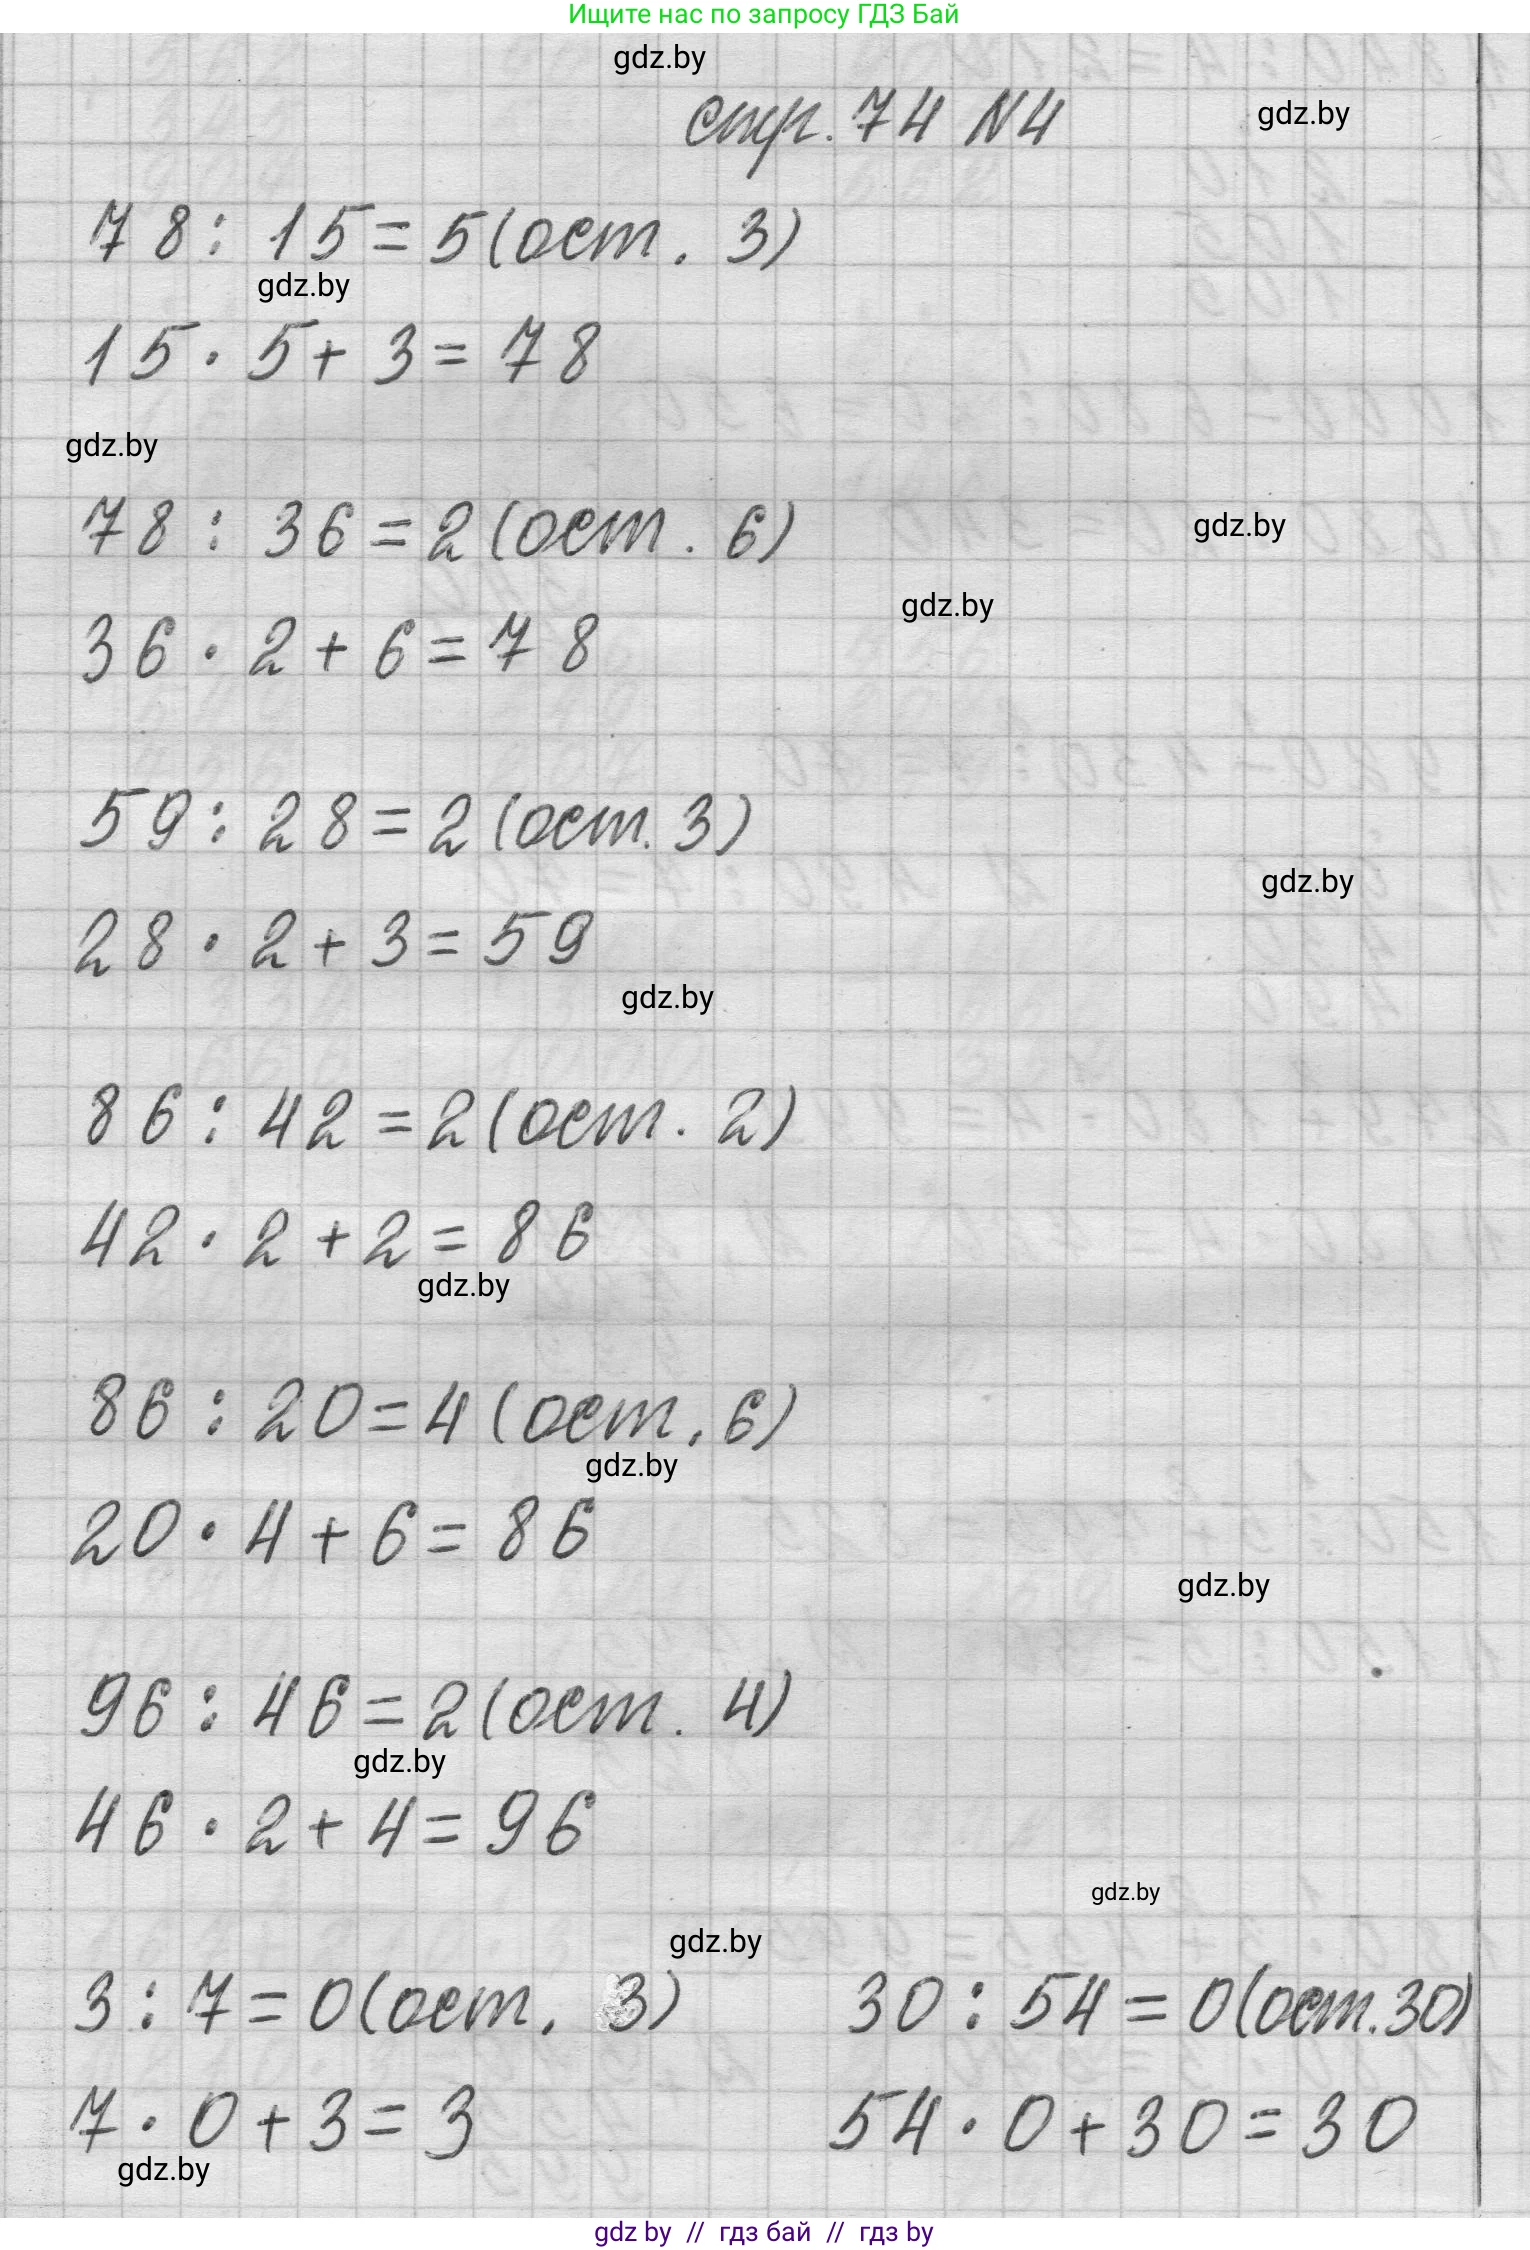 Ищите нас по запросу ГДЗ Бай
gdz.by
стр. 74 N4
gdz.by
78 : 15 = 5 (ост. 3)
gdz.by
15 · 5 + 3 = 78
gdz.by
78 : 36 = 2 (ост. 6)
gdz.by
gdz.by
36 · 2 + 6 = 78
59 : 28 = 2 (ост. 3)
gdz.by
28 · 2 + 3 = 59
gdz.by
86 : 42 = 2 (ост. 2)
42 · 2 + 2 = 86
gdz.by
86 : 20 = 4 (ост. 6)
gdz.by
20 · 4 + 6 = 86
gdz.by
96 : 46 = 2 (ост. 4)
gdz.by
46 · 2 + 4 = 96
gdz.by
gdz.by
3 : 7 = 0 (ост. 3)
30 : 54 = 0 (ост. 30)
7 · 0 + 3 = 3
54 · 0 + 30 = 30
gdz.by
gdz by // гдз бай // гдз by